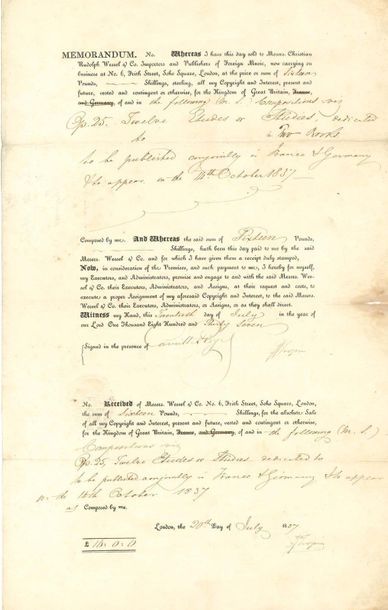 MEMORANDUM. No. Whereas I have this day sold to Messrs. Christian
Rudolph Wessel & Co. Importers and Publishers of Foreign Music, now carrying on
business at No. 6, Frith Street, Soho Square, London, at the price or sum of Sixteen
Pounds, Shillings, sterling, all my Copyright and Interest, present and
future, vested and contingent or otherwise, for the Kingdom of Great Britain, France,
and Germany, of and in the following (M. S.) Compositions viz
Op. 25. Twelve Etudes or Studies, dedicated
to in Two Books
to be published conjointly in France & Germany
& to appear on the 14th October 1837
Composed by me. And Whereas the said sum of Sixteen Pounds,
Shillings, hath been this day paid to me by the said
Messrs. Wessel & Co. and for which I have given them a receipt duly stamped,
Now, in consideration of the Premises, and such payment to me, I hereby for myself,
my Executors, and Administrators, promise and engage to and with the said Messrs. Wes-
sel & Co. their Executors, Administrators, and Assigns, at their request and costs, to
execute a proper Assignment of my aforesaid Copyright and Interest, to the said Messrs.
Wessel & Co. their Executors, Administrators, or Assigns, or as they shall direct.
Witness my Hand, this Twentieth day of July in the year of
our Lord One Thousand Eight Hundred and Thirty Seven
(Signed in the presence of
No. Received of Messrs. Wessel & Co. No. 6, Frith Street, Soho Square, London,
the sum of Sixteen Pounds, Shillings, for the absolute Sale
of all my Copyright and Interest, present and future, vested and contingent or otherwise,
for the Kingdom of Great Britain, France, and Germany, of and in the following (M. S.)
Compositions viz
Op. 25, Twelve Etudes or Studies dedicated to
to be published conjointly in France & Germany & to appear
on the 14th October 1837
as Composed by me.
London, the 20th Day of July 1837
£ 16. 0. 0